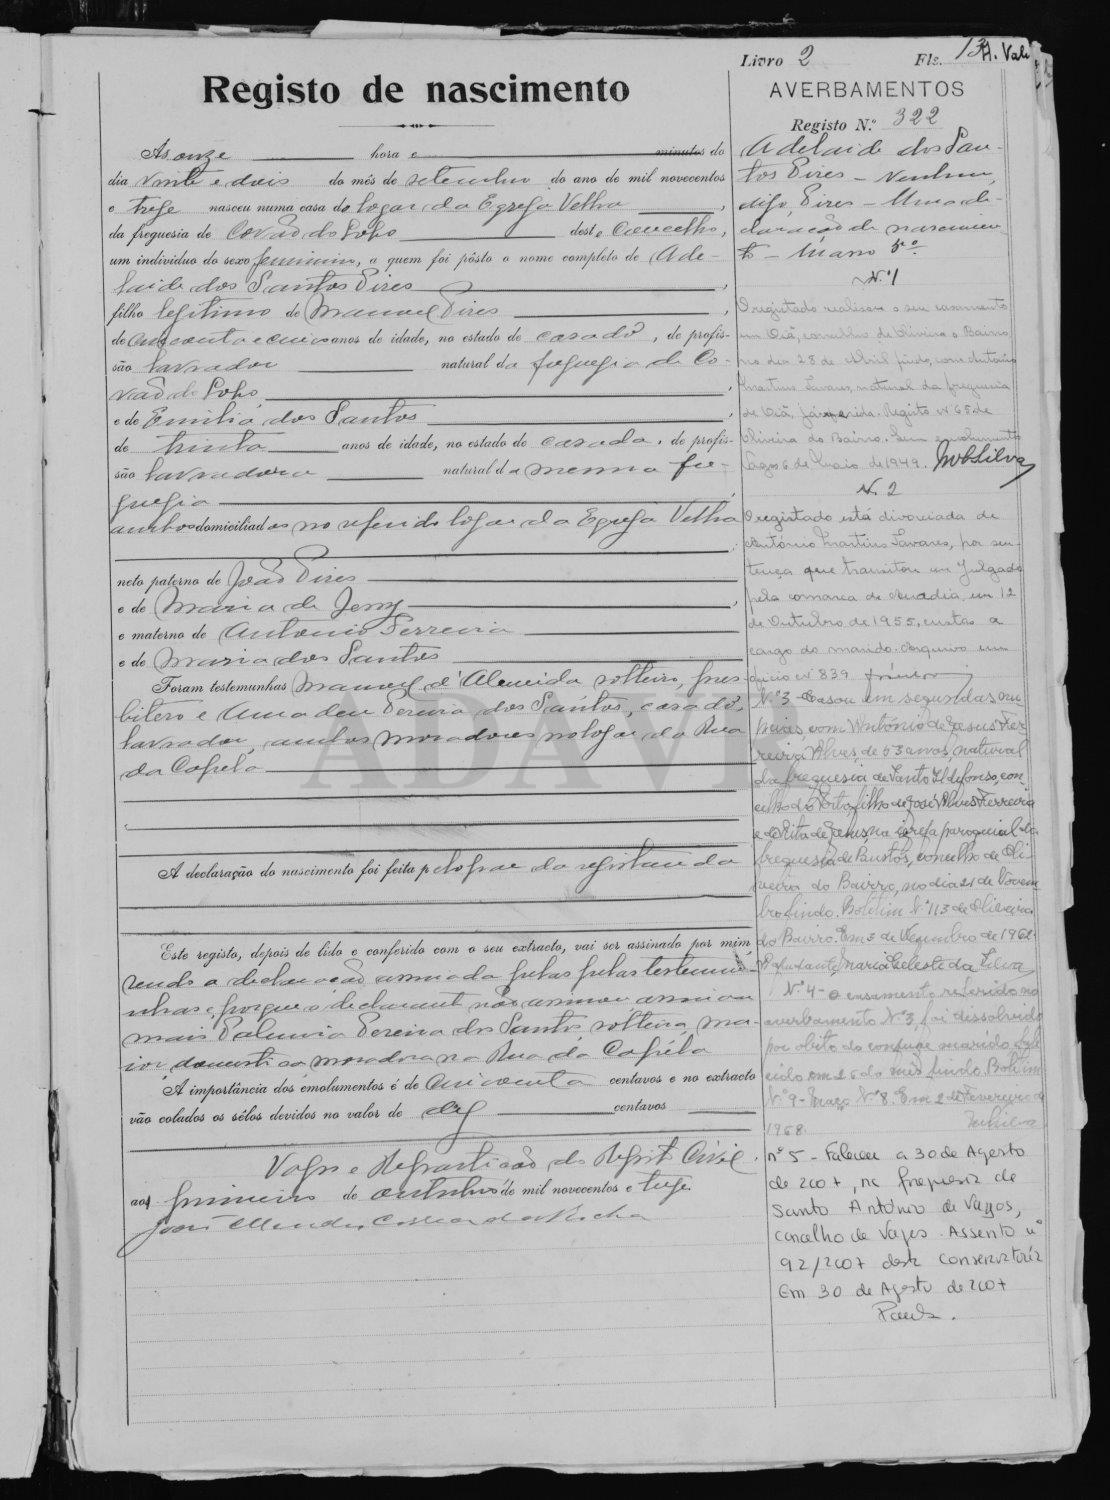 Livro 2 Fls. 13
A. Vali
Registo de nascimento
As onze hora e minutos do
dia vinte e dois do mês de setembro do ano de mil novecentos
e treze nasceu numa casa do logar da Egreja Velha,
da freguesia de Covão do Lobo deste Concelho,
um individuo do sexo feminino, a quem foi pôsto o nome completo de Ade-
laide dos Santos Pires,
filho legitimo de Manuel Pires,
de cincoenta e cinco anos de idade, no estado de casado, de profis-
são lavrador natural da freguesia de Co-
vão do Lobo,
e de Emilia dos Santos,
de trinta anos de idade, no estado de casada, de profis-
são lavradora natural da mesma fre-
guesia,
ambos domiciliados no referido logar da Egreja Velha
;
neto paterno de João Pires
e de Maria de Jesus,
e materno de Antonio Ferreira
e de Maria dos Santos
Foram testemunhas Manuel d'Almeida solteiro, pres-
bitero e Amadeu Pereira dos Santos, casado,
lavrador, ambos moradores no logar da Rua
da Capela
A declaração do nascimento foi feita pelo pae da registanda
Este registo, depois de lido e conferido com o seu extracto, vai ser assinado por mim
sendo a declaração assinada pelas testemu-
nhas e porque o declarante não assinou assina
mais Palmira Pereira dos Santos, solteira, ma-
ior domestica moradora na Rua da Capéla
A importância dos emolumentos é de cincoenta centavos e no extracto
vão colados os sêlos devidos no valor de dez centavos
Vagos e Repartição do Registo Civil,
aos primeiro de outubro de mil novecentos e treze
José Mendes Correia da Rocha
AVERBAMENTOS
Registo N.º 322
Adelaide dos San-
tos Pires – Nenhum,
digo, Pires – Uma de-
claração de nascimen-
to –
N.º 1
O registado realisou o seu casamento
em Oiã, concelho de Oliveira do Bairro
no dia 28 de Abril findo, com António
Martins Tavares, natural da freguesia
de Oiã, já referida. Registo nº 65 de
Oliveira do Bairro. Sem emolumentos
Vagos 6 de Maio de 1949. MVSilva
N. 2
O registado está divorciada de
António Martins Tavares, por sen-
tença que transitou em julgado
pela comarca de Anadia, em 12
de Outubro de 1955, custas a
cargo do marido. Arquivo
nº 839
N.º 3 – Casou em segundas nu-
pcias com António de Jesus Fer-
reira Alves, de 53 anos, natural
da freguesia de Santo Ildefonso, con-
celho do Porto, filho de José Alves Ferreira
e de Rita de Jesus, na igreja paroquial da
freguesia de Bustos, concelho de Oli-
veira do Bairro, no dia 21 de Novem
bro findo. Boletim Nº 113 de Oliveira
do Bairro. Em 3 de Dezembro de 1962.
O ajudante, Maria Celeste da Silva
N.º 4 – O casamento referido no
averbamento Nº 3, foi dissolvido
por obito do conjuge marido fale
cido em 26 do mês findo. Boletim
Nº 9 – Março Nº 8. Em 2 de Fevereiro de
1968.
nº 5 – Faleceu a 30 de Agosto
de 2007, na freguesia de
Santo António de Vagos,
concelho de Vagos. Assento nº
92/2007 desta conservatória
Em 30 de Agosto de 2007
Paula.
ADAVR